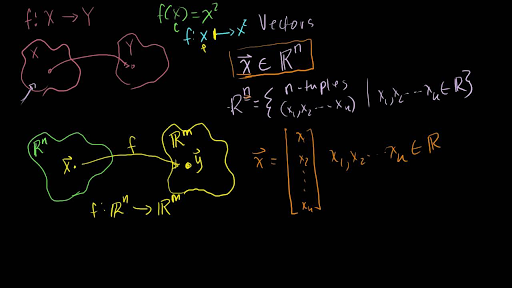 f: X → Y
f(x) = x²
f: x ↦ x²
Vectors
X
Y
x⃗ ∈ ℝⁿ
ℝⁿ = { n-tuples (x₁, x₂ ... xₙ) | x₁, x₂ ... xₙ ∈ ℝ }
ℝⁿ
x⃗
f
ℝᵐ
y⃗
x⃗ = [ x₁ x₂ ⋮ xₙ ] x₁, x₂ ... xₙ ∈ ℝ
f: ℝⁿ → ℝᵐ